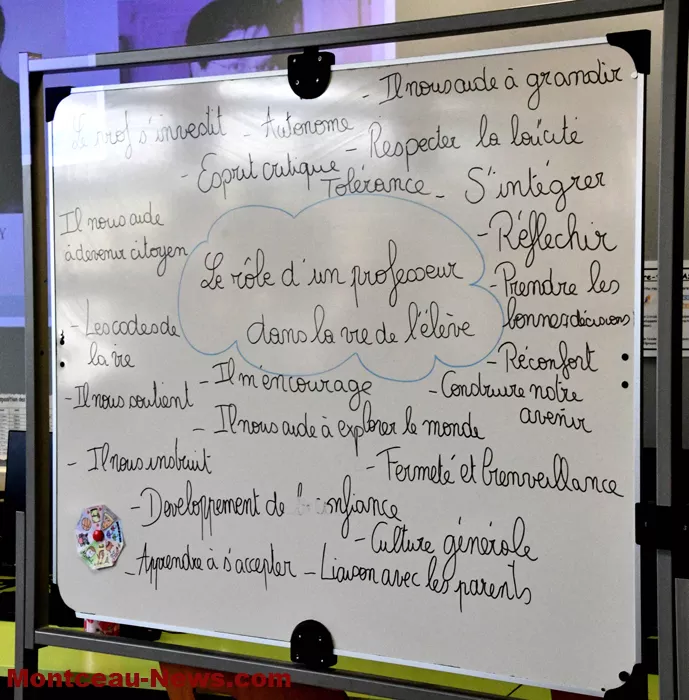 - Il nous aide à grandir
Le prof s'investit - Autonome - Respecter la laïcité
- Esprit critique Tolérance - S'intégrer
Il nous aide
à devenir citoyen
- Réflechir
Le rôle d'un professeur
dans la vie de l'élève
- Prendre les
bonnes décisions
- Les codes de
la vie
- Réconfort
- Il m'encourage
- Construire notre
avenir
- Il nous soutient
- Il nous aide à explorer le monde
- Il nous instruit
- Fermeté et bienveillance
- Developpement de la confiance
- Culture générale
- Apprendre à s'accepter - Liaison avec les parents
Montceau-News.com